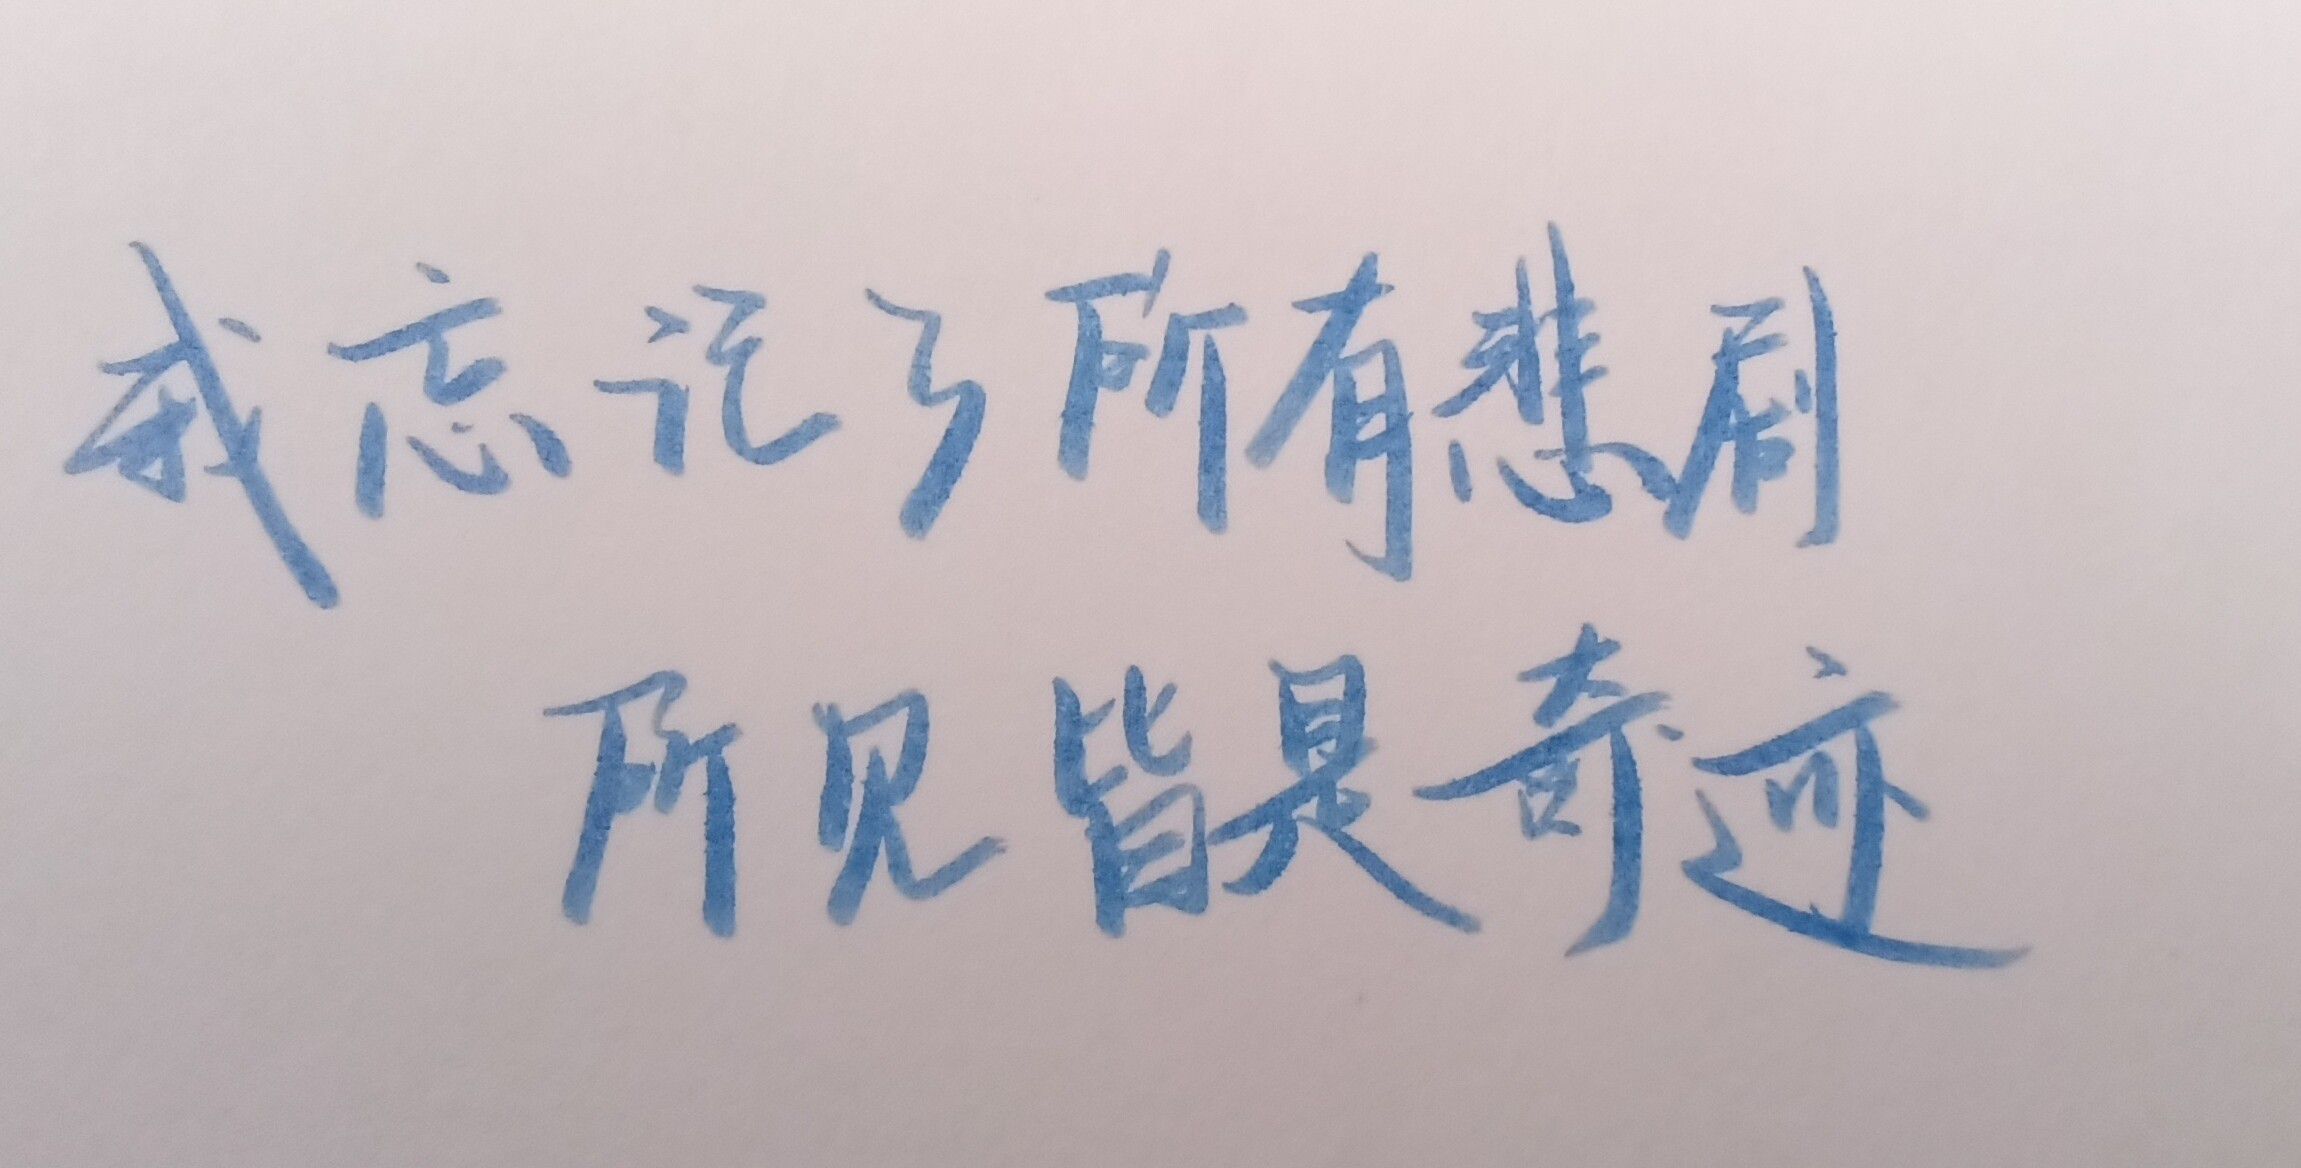 我忘记了所有悲剧
所见皆是奇迹